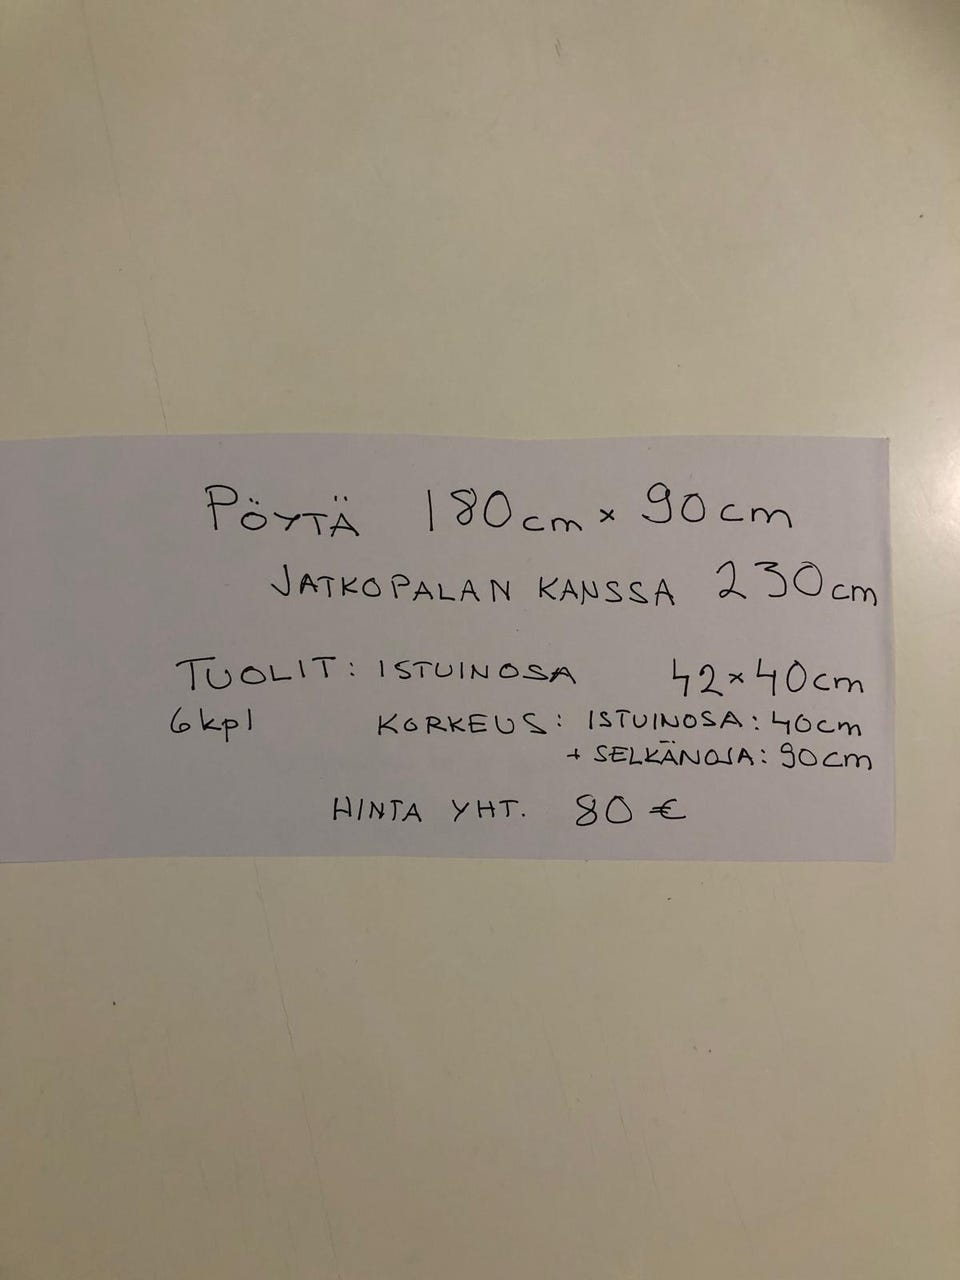 PÖYTÄ 180cm × 90cm
JATKOPALAN KANSSA 230cm
TUOLIT: ISTUINOSA 42×40cm
6kpl KORKEUS: ISTUINOSA: 40cm
+ SELKÄNOJA: 90cm
HINTA YHT. 80 €